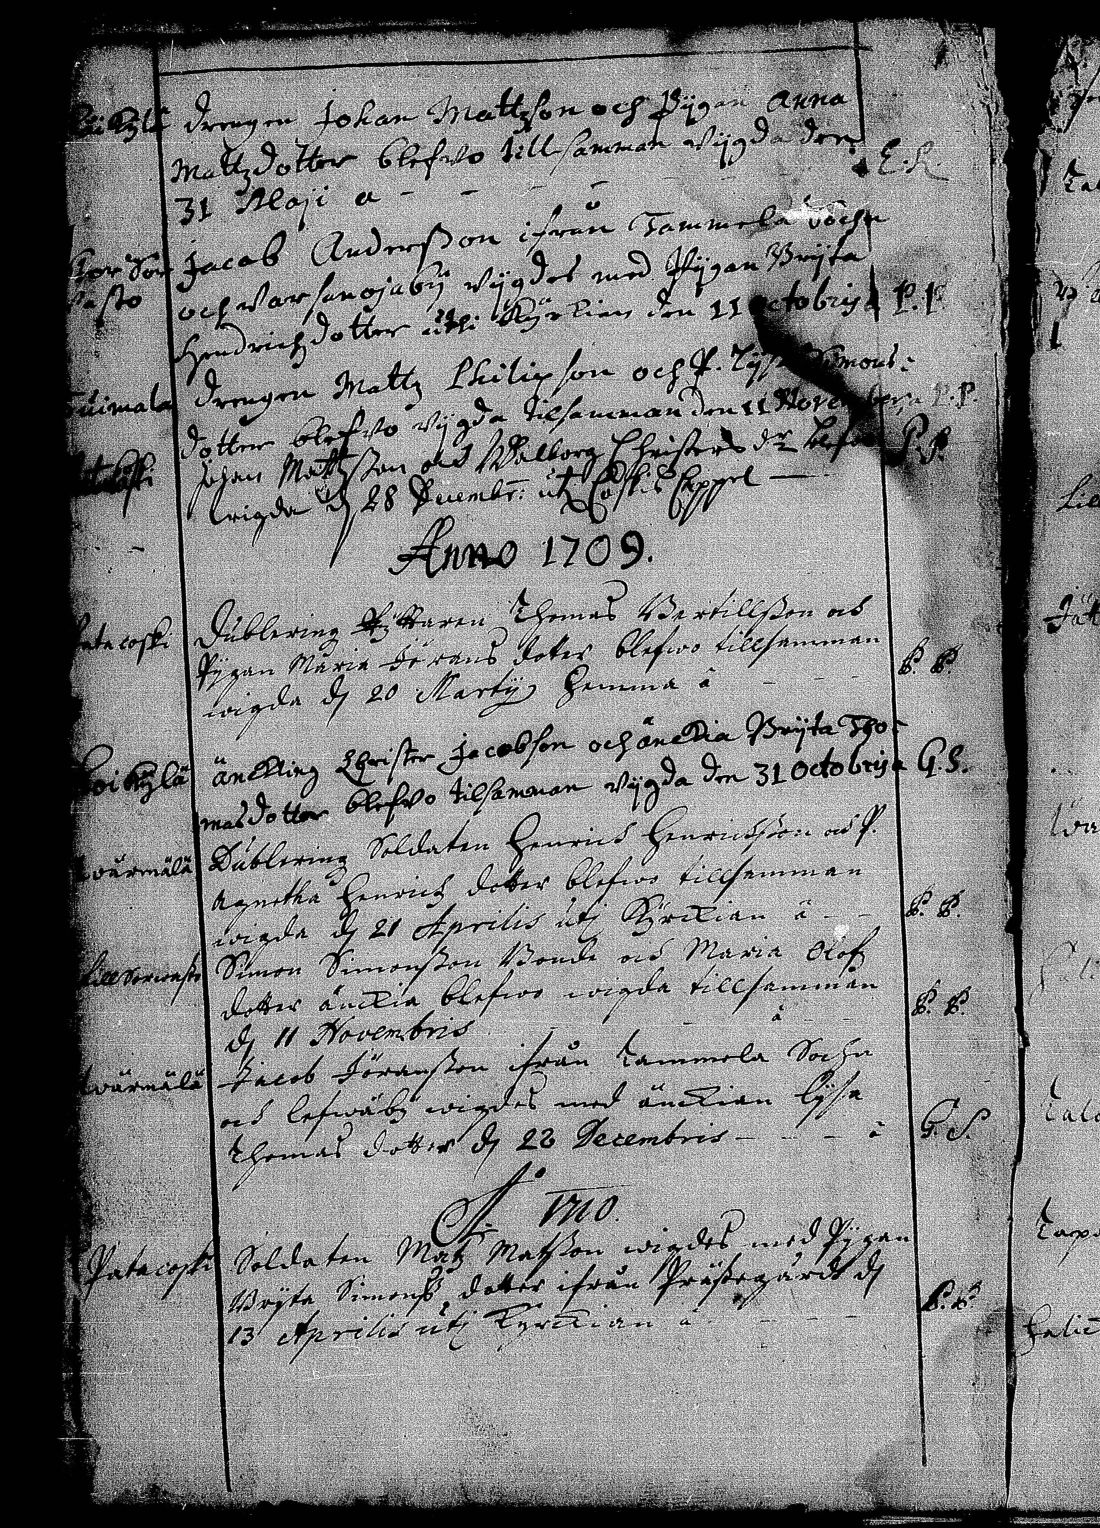 drengen Johan Mattzson och Pijgan Anna
Mattzdotter blefvo till samman vijgda den
31 Maji a - - - - E.K.
Jacob Anderßon ifrån Tammela Sochn
och varsanojabÿ vijgdes med Pijgan Brijta
Hendrichzdotter uthi Kÿrkian den 11 octobris P.P.
Suimala drengen Mattz Philipson och P. Lijsa Simons-
dotter blefvo vijgda tilsamman den 11 November P.P.
Johan Mattzsson och Walborg Christers dr blefvo P.P.
wigda dj 28 Decembr: utj Coskis Cappel
Anno 1709.
Patacoski Dublering Rÿttaren Thomas Bertillßon och
Pÿgan Maria Jörans doter blefwo tillsamman
wigda dj 20 Martij hemma â - - - P. P.
Koikÿlä änckling Christer Jacobson och änckia Brijta Tho-
masdotter blefvo tilsamman vijgda den 31 octobris G.S.
Wurmälä Dublering Soldaten Henrich Henrichßon och P.
Agnetha Henrichz dotter blefwo tillsamman
wigda dj 21 Aprilis utj Kÿrckian â - - P. P.
Simon Simonßon Bonde och Maria Olofz
dotter änckia blefwo wigda tillsamman
dj 11 Novembris - - â P. P.
Wurmälä Jacob Jöranßon ifrån Tammela Sochn
och wigdes med änckian Lÿsa
Thomas dotter dj 22 Decembris - - - â G.S.
A° 1710.
Patacoski Soldaten Matz Matßon wigdes med Pÿgan
Brÿta Simonß dotter ifrån Prästegårdt dj
13 Aprilis utj Kyrckian â - - - P.P.